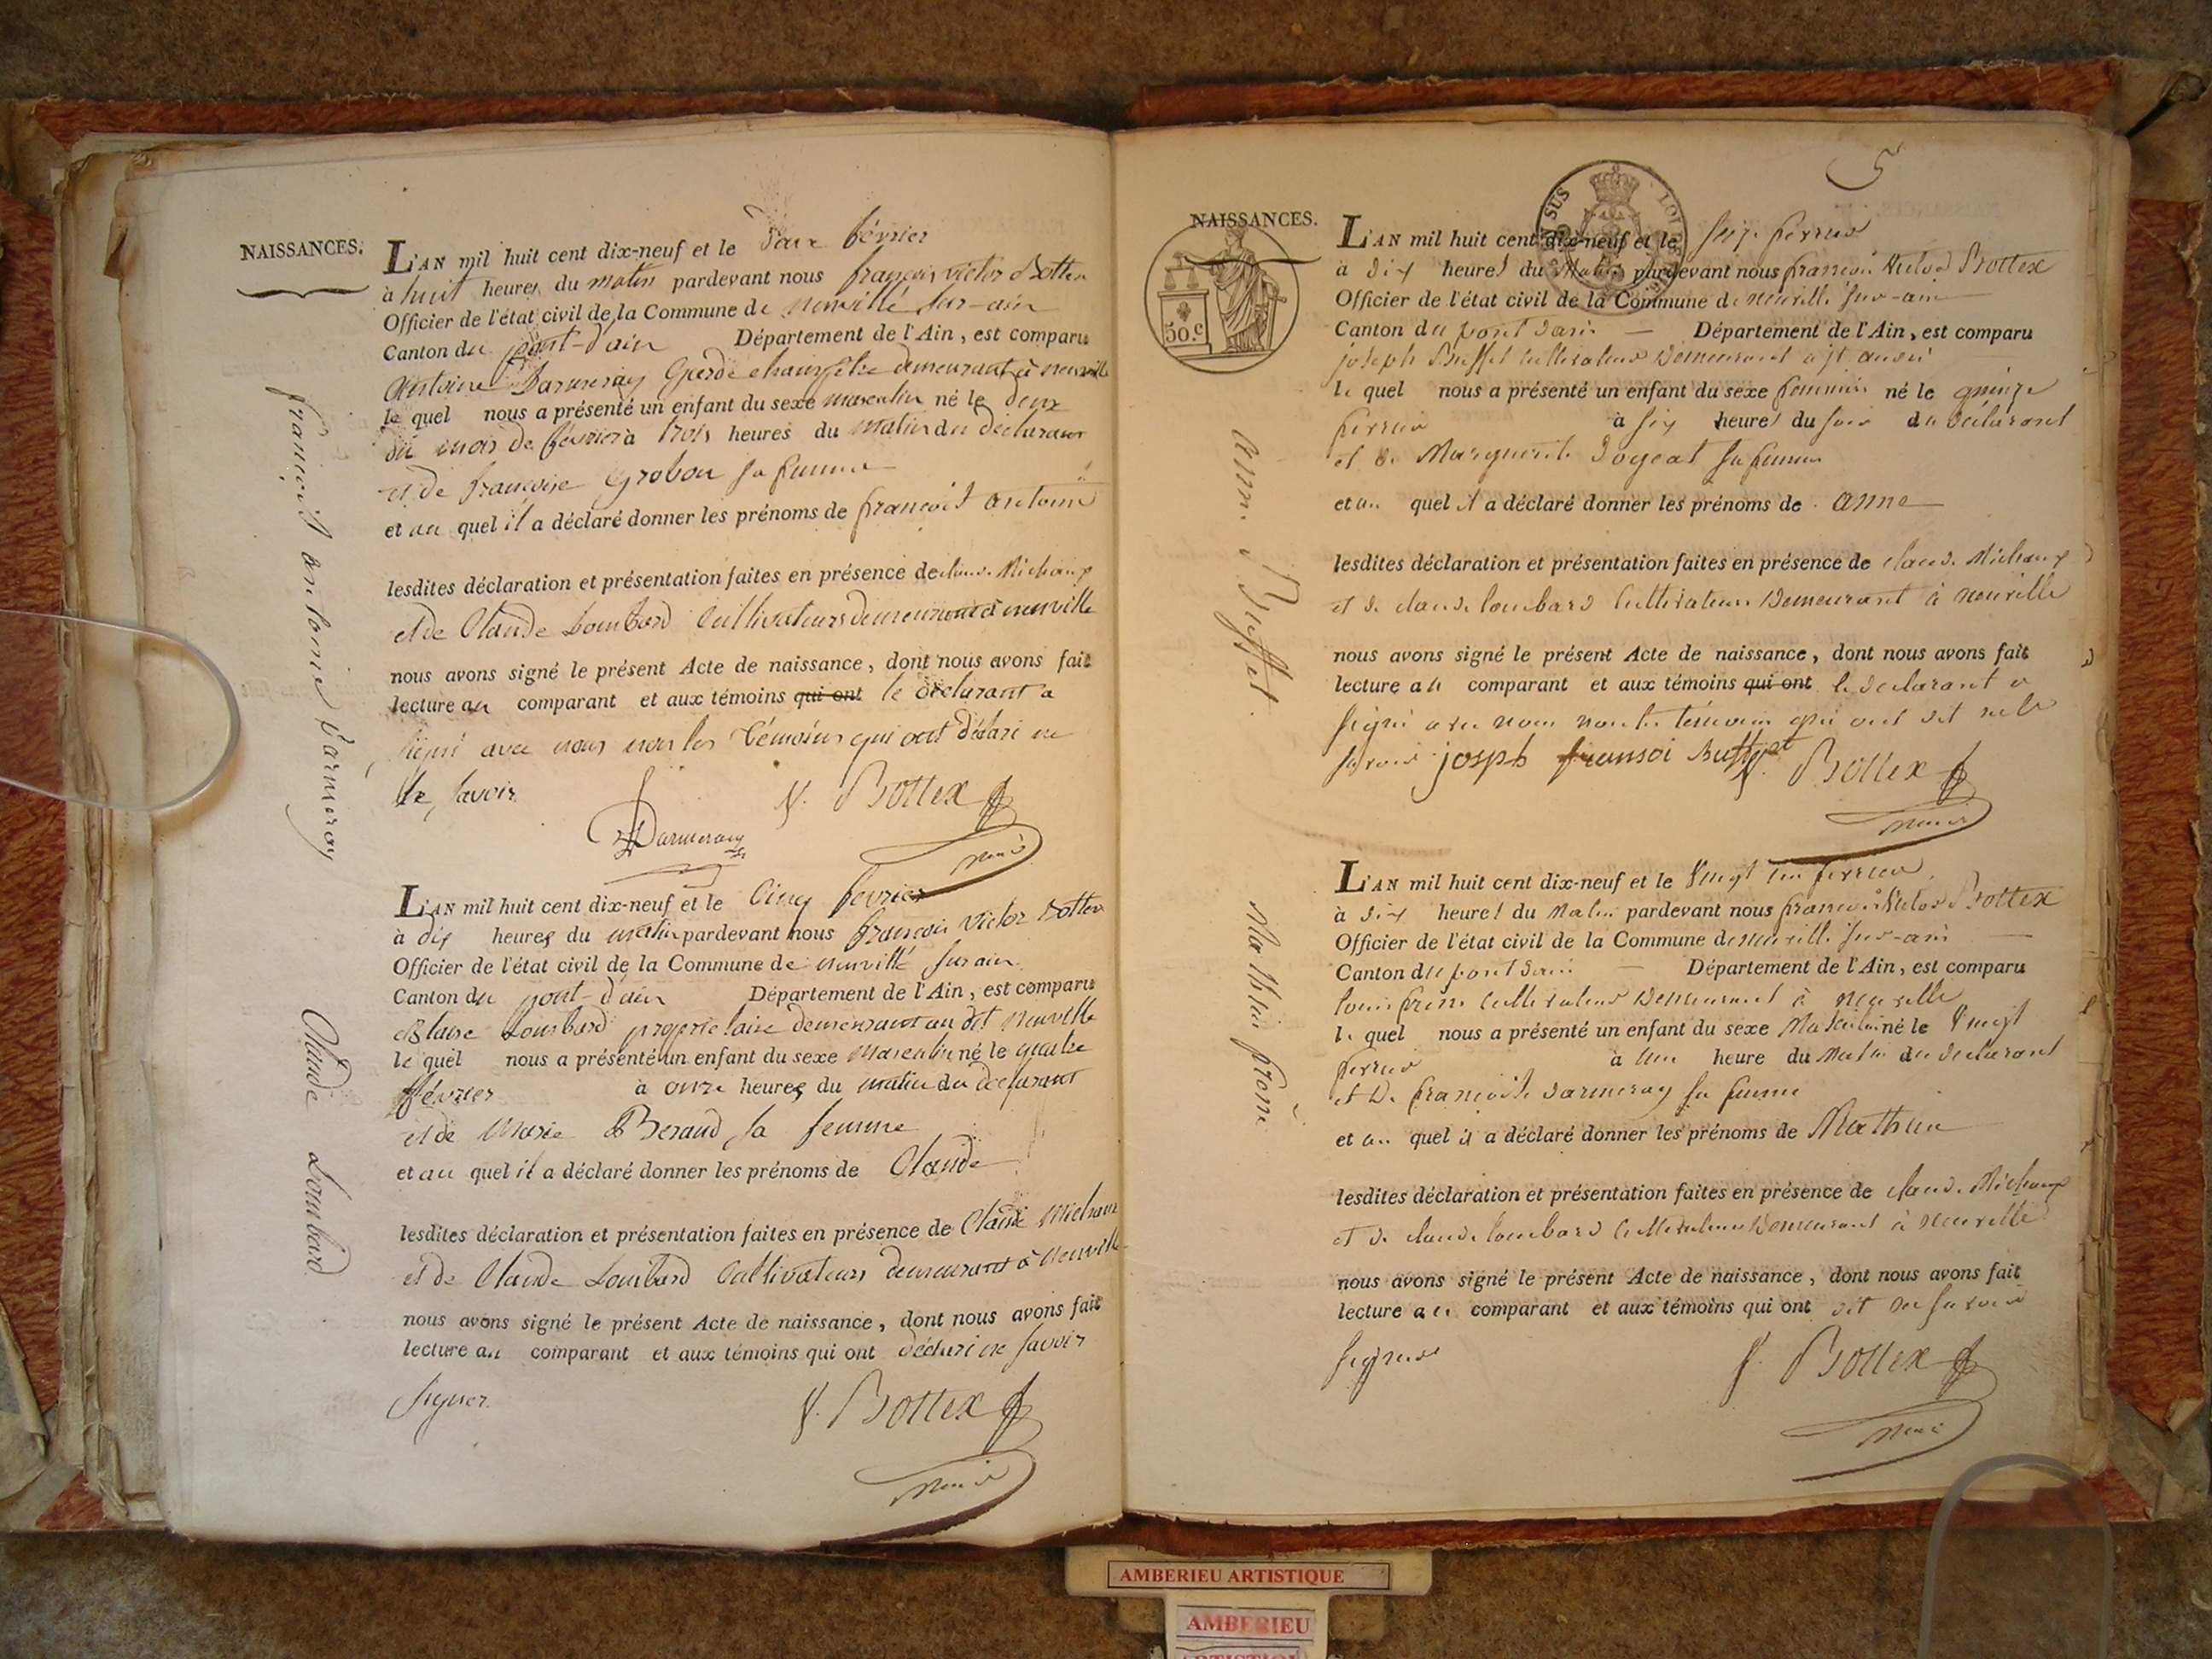 NAISSANCES.
L'AN mil huit cent dix-neuf et le deux février
à huit heures du matin pardevant nous françois victor Bottex
Officier de l'état civil de la Commune de neuville sur-ain
Canton du pont-d'ain Département de l'Ain, est comparu
antoine Darmeray garde champêtre demeurant à neuville
le quel nous a présenté un enfant du sexe masculin né le deux
du mois de février à trois heures du matin du déclarant
et de françoise Grobon sa femme
et au quel il a déclaré donner les prénoms de françois antoine
lesdites déclaration et présentation faites en présence de claude Michaux
et de Claude Lombard Cultivateurs demeurant à neuville
nous avons signé le présent Acte de naissance, dont nous avons fait
lecture au comparant et aux témoins qui ont le déclarant a
signé avec nous non les témoins qui ont déclaré ne
le savoir
Darmeray
V. Bottex
françois antoine Darmeray
L'AN mil huit cent dix-neuf et le Cinq février
à dix heures du matin pardevant nous françois victor Bottex
Officier de l'état civil de la Commune de neuville sur ain
Canton du pont-d'ain Département de l'Ain, est comparu
Blaise Lombard propriétaire demeurant au dit neuville
le quel nous a présenté un enfant du sexe masculin né le quatre
février à onze heures du matin du déclarant
et de Marie Beraud sa femme
et au quel il a déclaré donner les prénoms de Claude
lesdites déclaration et présentation faites en présence de Claude Michaux
et de Claude Lombard Cultivateurs demeurant à neuville
nous avons signé le présent Acte de naissance, dont nous avons fait
lecture au comparant et aux témoins qui ont déclaré ne savoir
signer
V. Bottex
Claude Lombard
5
NAISSANCES.
50.c
L'AN mil huit cent dix-neuf et le seize fevrier
à dix heures du matin pardevant nous francois Victor Bottex
Officier de l'état civil de la Commune de neuville sur-ain
Canton du pont dain Département de l'Ain, est comparu
joseph Buffet cultivateur demeurant à
le quel nous a présenté un enfant du sexe feminin né le quinze
fevrier à six heures du soir du declarant
et de Marguerite Dogeat sa femme
et au quel il a déclaré donner les prénoms de anne
lesdites déclaration et présentation faites en présence de claude Michaux
et de claude lombard cultivateurs demeurant à neuville
nous avons signé le présent Acte de naissance, dont nous avons fait
lecture au comparant et aux témoins qui ont le declarant a
signé avec nous non les temoins qui ont dit ne le
savoir joseph fransoi Buffet V. Bottex
anne Buffet
L'AN mil huit cent dix-neuf et le vingt un fevrier
à dix heures du matin pardevant nous francois Victor Bottex
Officier de l'état civil de la Commune de neuville sur-ain
Canton du pont dain Département de l'Ain, est comparu
cultivateur demeurant à neuville
le quel nous a présenté un enfant du sexe Masculin né le vingt
fevrier à une heure du matin du declarant
et de francoise darmeray sa femme
et au quel il a déclaré donner les prénoms de Mathieu
lesdites déclaration et présentation faites en présence de claude Michaux
et de claude lombard cultivateurs demeurant à neuville
nous avons signé le présent Acte de naissance, dont nous avons fait
lecture au comparant et aux témoins qui ont dit ne savoir
signer V. Bottex
Mathieu
AMBERIEU ARTISTIQUE
AMBERIEU
ARTISTIQUE